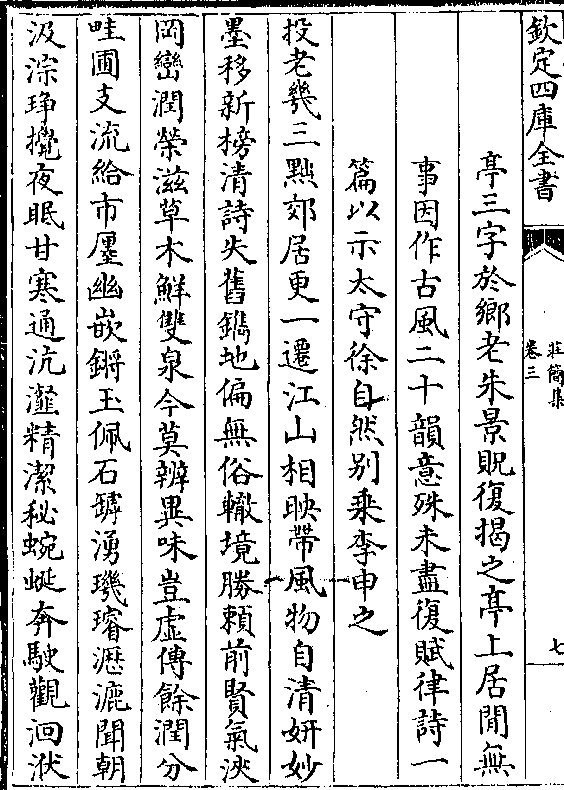 欽定四庫全書
莊簡集
卷三
七
亭三字於鄉老朱景貺復揭之亭上居閒無
事因作古風二十韻意殊未盡復賦律詩一
篇以示太守徐自然別乗李申之
投老幾三黜郊居更一遷江山相映帶風物自清妍妙
墨移新榜清詩失舊鐫地偏無俗轍境勝頼前賢氣浹
岡巒潤榮滋草木鮮雙泉今莫辨異味豈虚傳餘潤分
畦圃支流給市廛幽嵌鏘玉佩石罅湧璣璿瀝漉聞朝
汲淙琤攪夜眠甘寒通沆瀣精潔秘蜿蜒奔駛觀洄洑